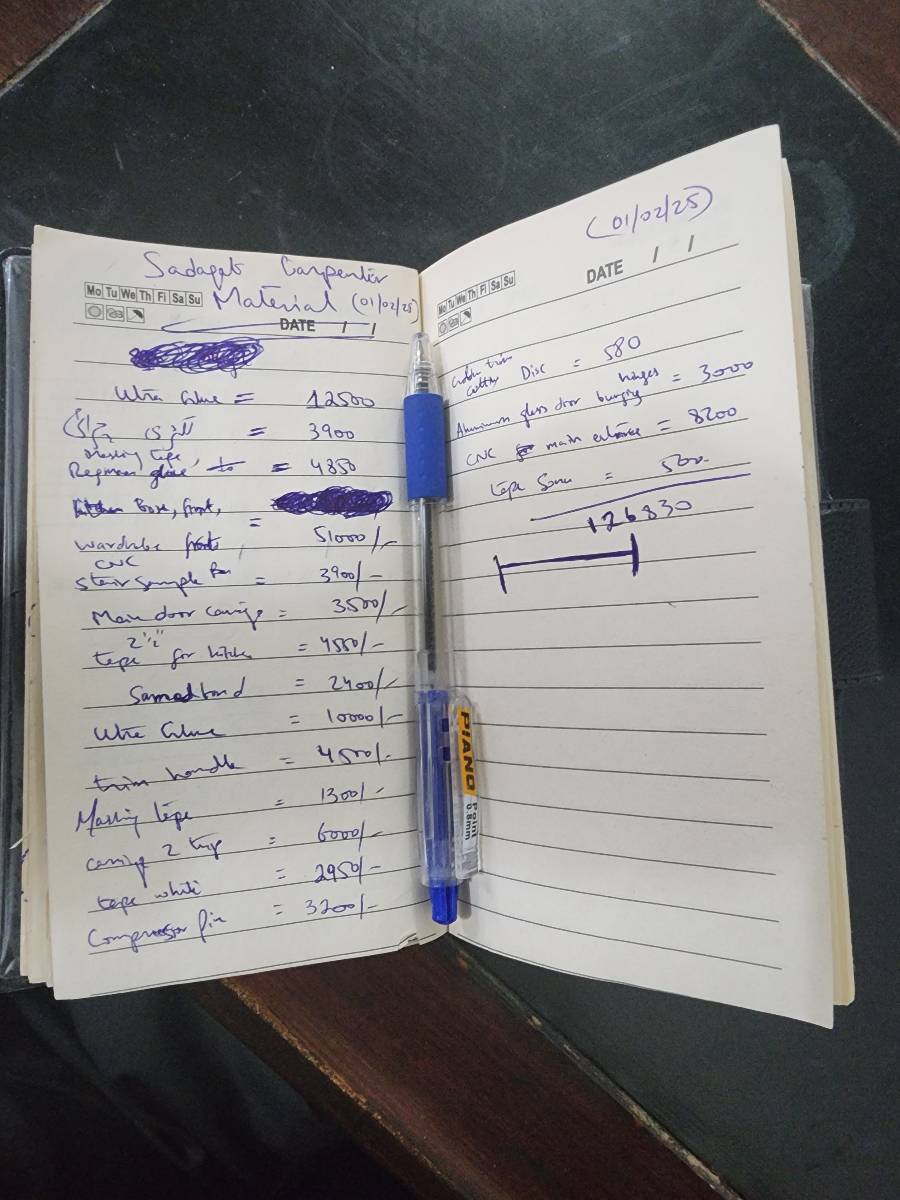 Sadaqat Carpenter
Mo Tu We Th Fr Sa Su Material (01/02/25)
DATE / /
Ultra Glue = 12500
لکڑی چرائی = 3900
Masking tape,
Regmear glue, = 4850
Kitchen Base, front, =
wardrobe front 51000/-
CNC
Stair sample for = 3900/-
Main door carving = 3500/-
2 1/2"
tape for kitchen = 4550/-
Samad bond = 2400/-
Ultra Glue = 10000/-
trim handle = 4500/-
Masking tape = 1300/-
carriage 2 trip = 6000/-
tape white = 2950/-
Compressor Pin = 3200/-
(01/02/25)
Mo Tu We Th Fr Sa Su
DATE / /
cutter Disc = 580
Aluminum glass door hinges = 3000
CNC main entrance = 8200
tape = 500
126830
PIANO
Point
0.8mm